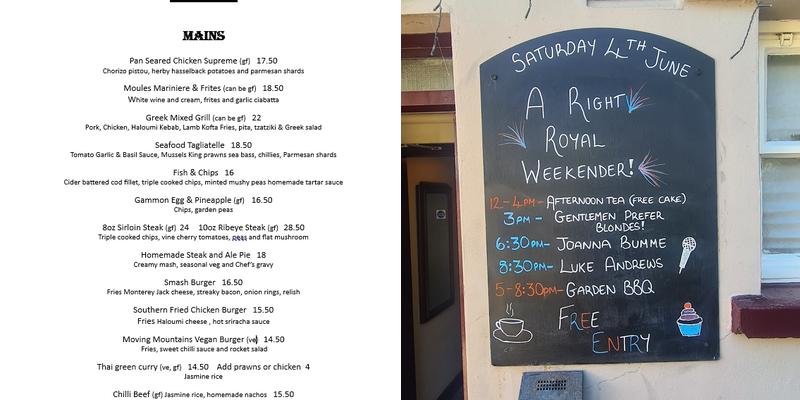 MAINS
Pan Seared Chicken Supreme (gf) 17.50
Chorizo pistou, herby hasselback potatoes and parmesan shards
Moules Mariniere & Frites (can be gf) 18.50
White wine and cream, frites and garlic ciabatta
Greek Mixed Grill (can be gf) 22
Pork, Chicken, Haloumi Kebab, Lamb Kofta Fries, pita, tzatziki & Greek salad
Seafood Tagliatelle 18.50
Tomato Garlic & Basil Sauce, Mussels King prawns sea bass, chillies, Parmesan shards
Fish & Chips 16
Cider battered cod fillet, triple cooked chips, minted mushy peas homemade tartar sauce
Gammon Egg & Pineapple (gf) 16.50
Chips, garden peas
8oz Sirloin Steak (gf) 24 10oz Ribeye Steak (gf) 28.50
Triple cooked chips, vine cherry tomatoes, peas and flat mushroom
Homemade Steak and Ale Pie 18
Creamy mash, seasonal veg and Chef's gravy
Smash Burger 16.50
Fries Monterey Jack cheese, streaky bacon, onion rings, relish
Southern Fried Chicken Burger 15.50
Fries Haloumi cheese , hot sriracha sauce
Moving Mountains Vegan Burger (ve) 14.50
Fries, sweet chilli sauce and rocket salad
Thai green curry (ve, gf) 14.50 Add prawns or chicken 4
Jasmine rice
Chilli Beef (gf) Jasmine rice, homemade nachos 15.50
SATURDAY 4TH JUNE
A RIGHT
ROYAL
WEEKENDER!
12-4PM- AFTERNOON TEA (FREE CAKE)
3PM - GENTLEMEN PREFER
BLONDES!
6:30PM- JOANNA BUMME
8:30PM- LUKE ANDREWS
5-8:30PM- GARDEN BBQ
FREE
ENTRY